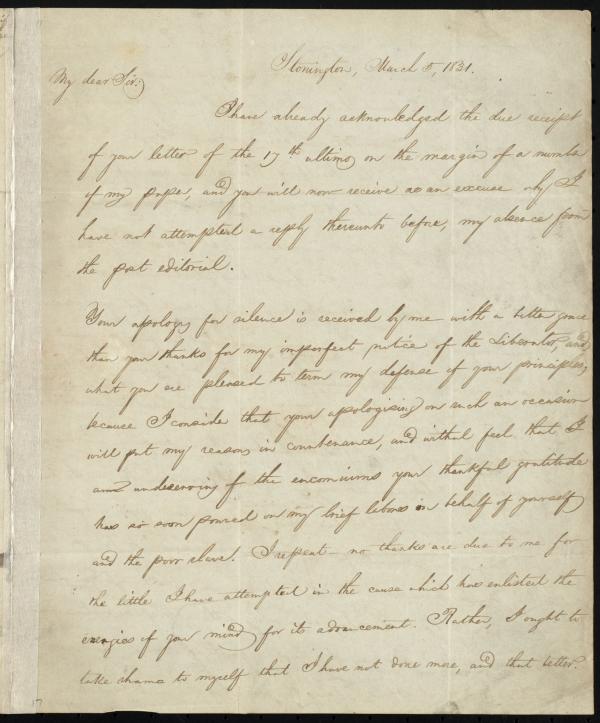 Stonington, March 5, 1831.
My dear Sir:
I have already acknowledged the due receipt
of your letter of the 17th ultimo on the margin of a number
of my paper, and you will now receive as an excuse why I
have not attempted a reply thereunto before, my absence from
the post editorial.
Your apology for silence is received by me with a better grace
than your thanks for my imperfect notice of the Liberator, and
what you are pleased to term my defense of your principles;
because I consider that your apologising on such an occasion
will put my reasons in countenance, and withal feel that I
am undeserving of the encomiums your thankful gratitude
has so soon poured on my brief labors in behalf of yourself
and the poor slave. I repeat - no thanks are due to me for
the little I have attempted in the cause which has enlisted the
energies of your mind for its advancement. Rather, I ought to
take shame to myself that I have not done more, and that better.